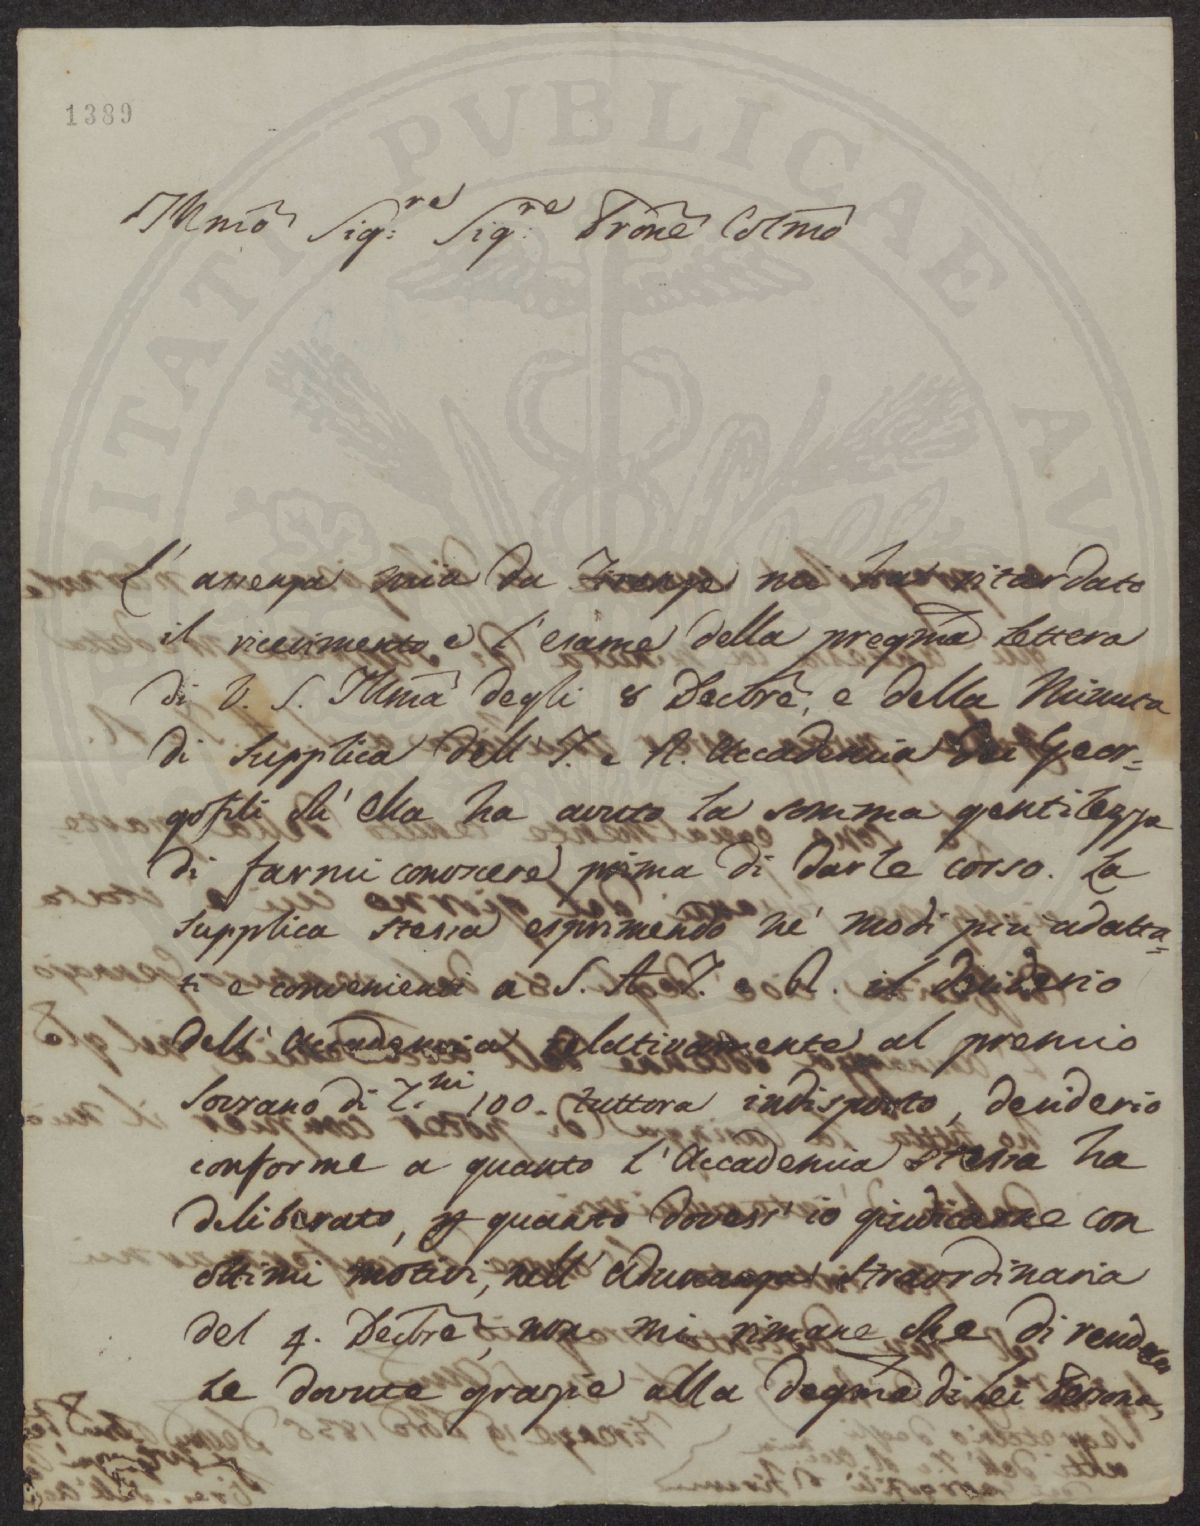 1389
Illmõ Sig:re Sig:re Prõne Colmõ
L'assenza mia da Firenze mi ha ritardato
il ricevimento e l'esame della pregmã Lettera
di V. S. Illmã degli 8 Decbrẽ, e della Minuta
di Supplica dell'I. e R. Accademia dei Geor=
gofili ch'Ella ha avuto la somma gentilezza
di farmi conoscere prima di darle corso. La
Supplica stessa esprimendo ne' modi più adatta=
ti e convenienti a S. A. I. e R. il desiderio
dell'Accademia relativamente al premio
Sovrano di Z.ni 100. tuttora indisposto, desiderio
conforme a quanto l'Accademia stessa ha
deliberato, p quanto dovess'io giudicarne con
ottimi motivi, nell'Adunanza straordinaria
del 4. Decbrẽ, non mi rimane che di rendere
le dovute grazie alla degmã di Lei Persona,